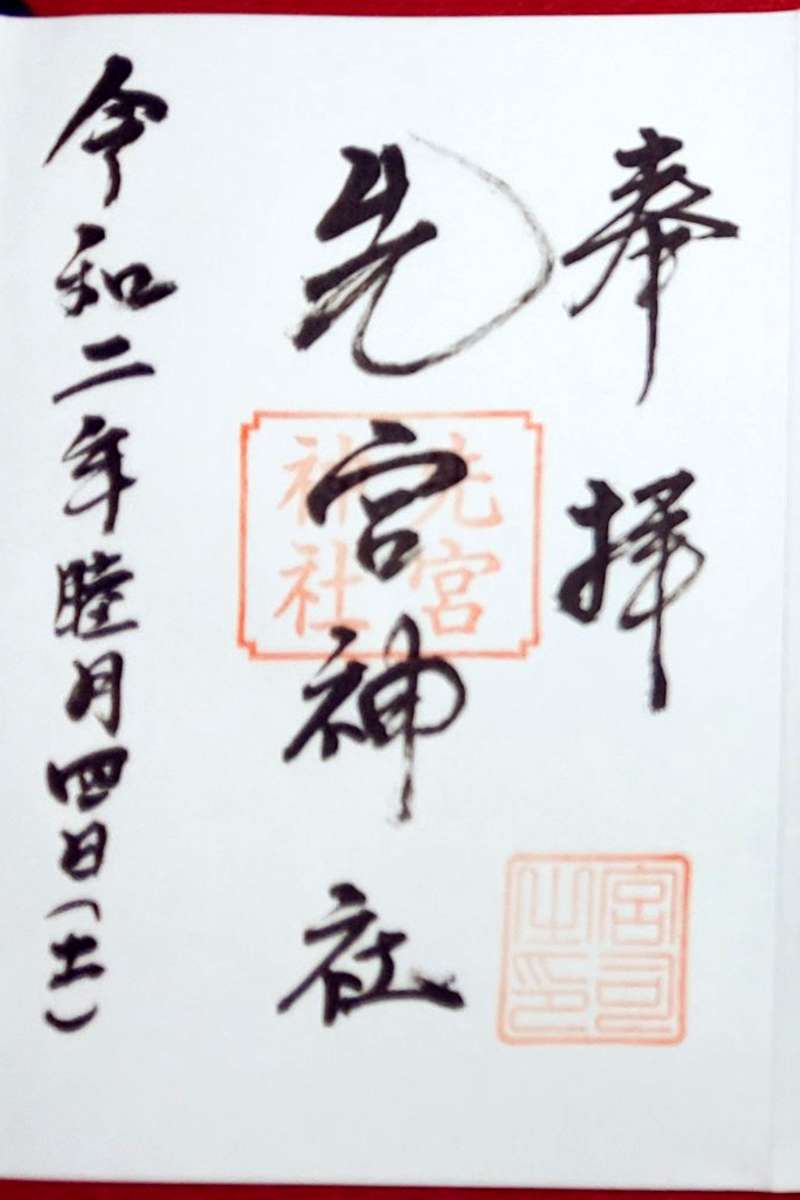 奉拝
先宮神社
先宮
神社
宮司
之印
令和二年睦月四日(土)